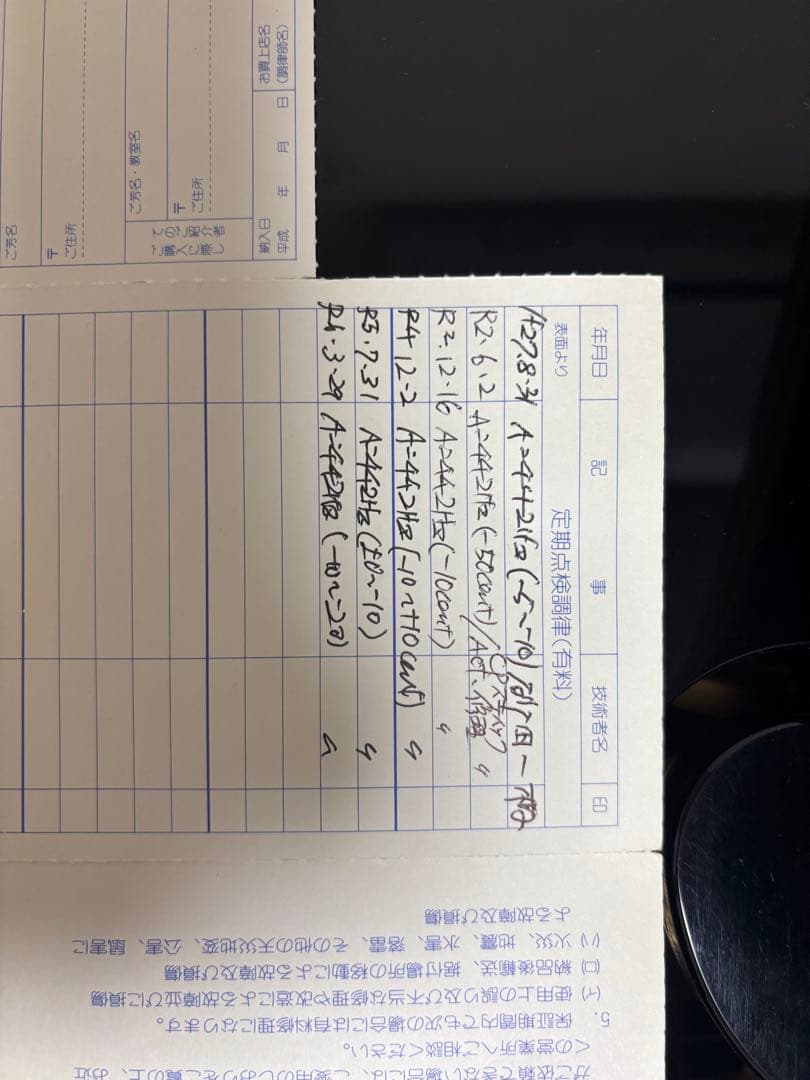 ご芳名
〒
ご住所
ご購入に際し
てのご紹介者
ご芳名・教室名
〒
ご住所
納入日
平成 年 月 日
お買上店名
(調律師名)
年月日 記 事 技術者名 印
表面より 定期点検調律(有料)
H27.8.31 A=442Hz(-5~-10)
R2.6.2 A=442Hz(-50cent)/Act.修理 〃
R3.12.16 A=442Hz(-10cent) 〃
R4.12.2 A=442Hz(-10~+10cent) 〃
R5.7.31 A=442Hz(±0~-10) 〃
3.29 A=442Hz 〃
がご依頼できない場合には、ご愛用のしおりをご覧の上、お近
くの営業所へご相談ください。
5. 保証期間内でも次の場合には有料修理になります。
(イ) 使用上の誤り及び不当な修理や改造による故障並びに損傷
(ロ) 納品後輸送、据付場所の移動による故障及び損傷
(ハ) 火災、地震、水害、落雷、その他の天災地変、公害、鼠害に
よる故障及び損傷